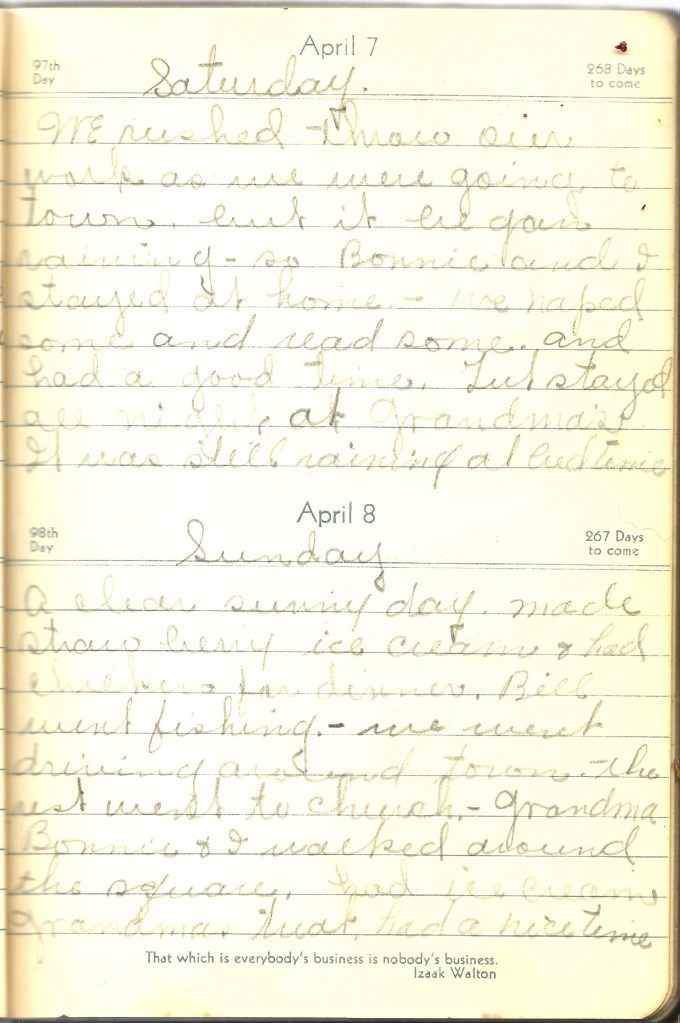 April 7
97th
Day
268 Days
to come
Saturday.
WE rushed throw our
work as we were going to
town. but it be gan
raining - so Bonnie and I
stayed at home. - we naped
some and read some. and
had a good time. stayed
all night at Grandma's
It was still raining at bedtime
April 8
98th
Day
267 Days
to come
Sunday
A clear sunny day. made
straw berry ice cream & had
chicken for dinner. Bill
went fishing. - we went
driving around town. - the
rest went to church. - Grandma
Bonnie & I walked around
the square. had ice cream
Grandmas treat. had a nice time
That which is everybody's business is nobody's business.
Izaak Walton